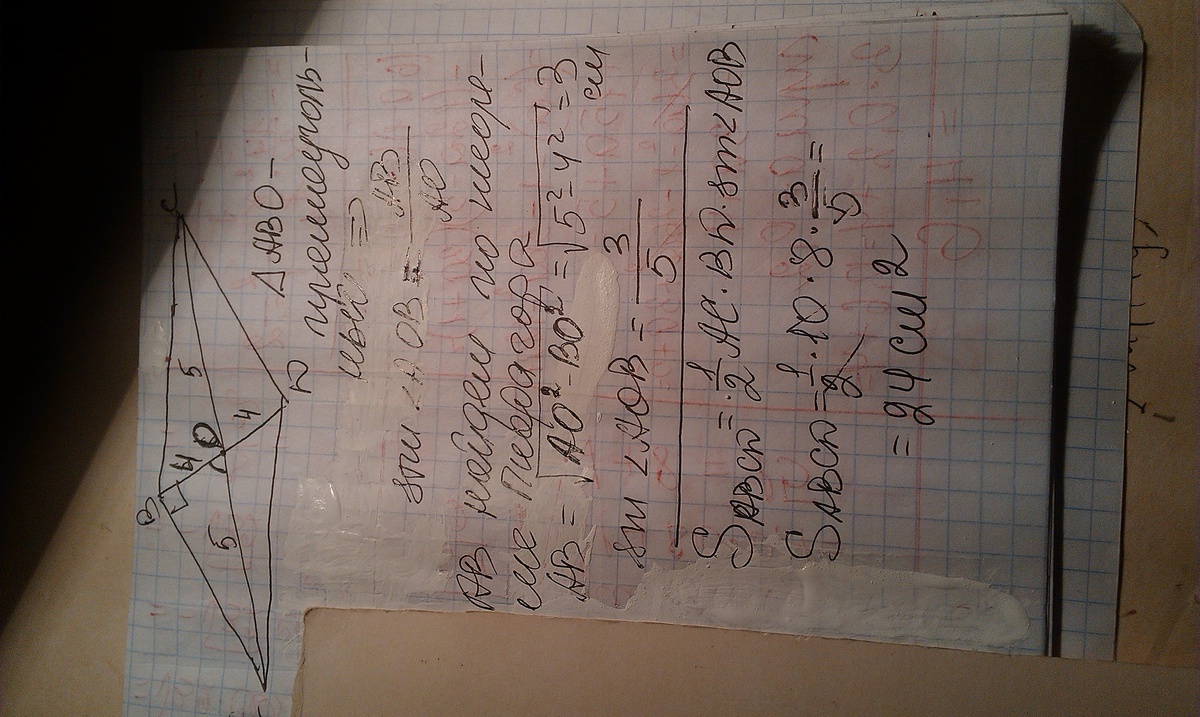 B
C
4
O
5
5
4
D
Δ ABO -
прямоуголь-
ный =>
sin ∠AOB = AB/AO
AB найдем по теоре-
ме Пифагора
AB = √AO² - BO² = √5² - 4² = 3 см
sin ∠AOB = 3/5
SABCD = 1/2 AC · BD · sin ∠AOB
SABCD = 1/2 · 10 · 8 · 3/5 =
= 24 см 2